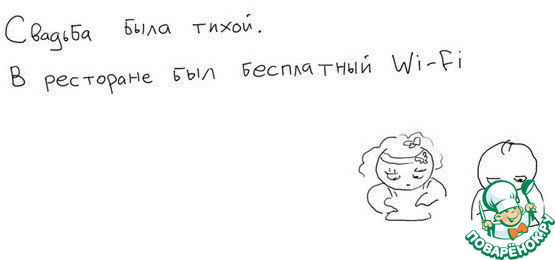 Свадьба была тихой.
В ресторане был бесплатный Wi-Fi
ПОВАРЁНОК.РУ